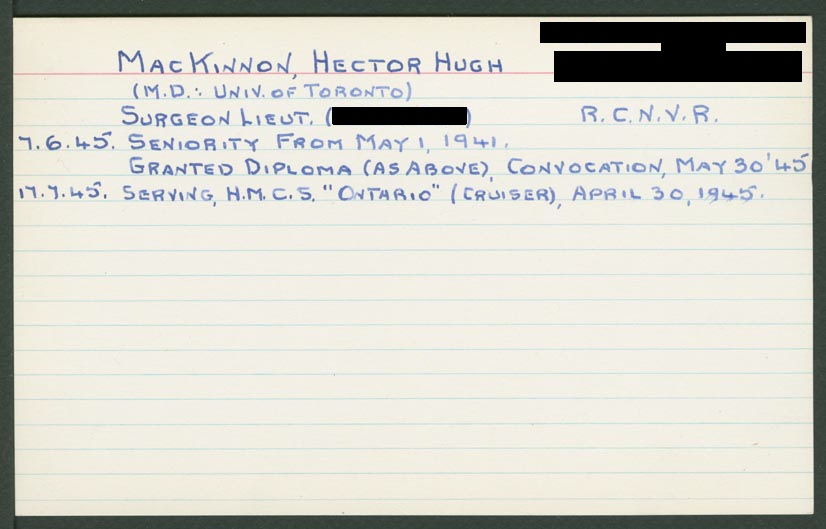 MacKinnon, Hector Hugh
(M.D.: Univ. of Toronto)
Surgeon Lieut. ( ) R.C.N.V.R.
7.6.45. Seniority from May 1, 1941.
Granted Diploma (as above), Convocation, May 30 '45
17.7.45. Serving, H.M.C.S. "Ontario" (Cruiser), April 30, 1945.